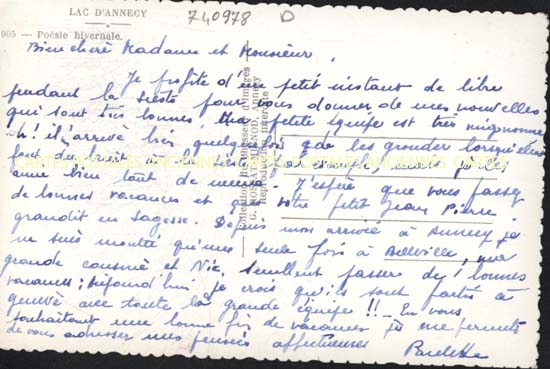 LAC D'ANNECY
740978 D
905 — Poésie hivernale.
Bien chers Madame et Monsieur,
Je profite d'un petit instant de libre
pendant la sieste pour vous donner de mes nouvelles
qui sont très bonnes. Ma petite équipe est très mignonne
oh! il arrive bien quelquefois de les gronder lorsqu'elles
font du bruit à la sieste par exemple, mais je les
aime bien tout de même. J'espère que vous passez
de bonnes vacances et que votre petit Jean Pierre
grandit en sagesse. Depuis mon arrivée à Annecy je
ne suis montée qu'une seule fois à Belleville, ma
grande cousine et Nic. semblent passer de bonnes
vacances; aujourd'hui je crois qu'ils sont partis à
Genève avec toute la grande équipe!! En vous
souhaitant une bonne fin de vacances je me permets
de vous adresser mes pensées affectueuses
Collection Bienfaiseurs d'images
G. MORAND, Annecy
Reproduction interdite